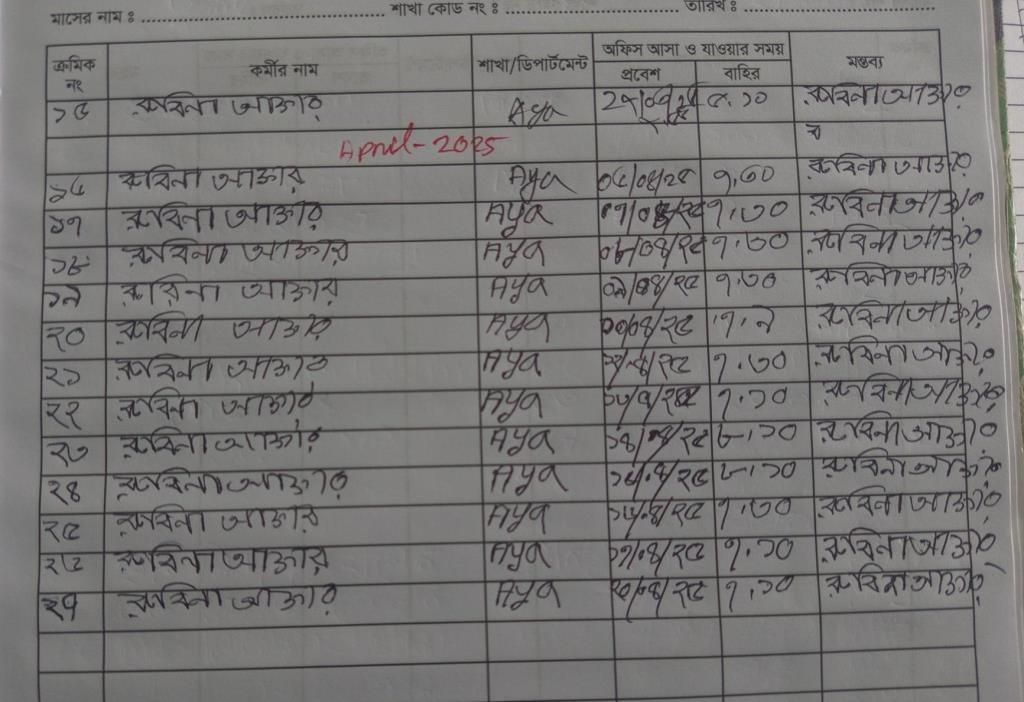 মাসের নাম : শাখা কোড নং : তারিখ :
ক্রমিক নং কর্মীর নাম শাখা/ডিপার্টমেন্ট অফিস আসা ও যাওয়ার সময় মন্তব্য
প্রবেশ বাহির
১৫ রুবিনা আক্তার Aya ৫.১০ রুবিনা আক্তার
April-2025
১৬ রুবিনা আক্তার Aya ০৬/০৪/২৫ ৭.৩০ রুবিনা আক্তার
১৭ রুবিনা আক্তার Aya ০৭/০৪/২৫ ৭.৩০ রুবিনা আক্তার
১৮ রুবিনা আক্তার Aya ০৮/০৪/২৫ ৭.৩০ রুবিনা আক্তার
১৯ রুবিনা আক্তার Aya ০৯/০৪/২৫ ৭.৩০ রুবিনা আক্তার
২০ রুবিনা আক্তার Aya রুবিনা আক্তার
২১ রুবিনা আক্তার Aya ৭.৩০ রুবিনা আক্তার
২২ রুবিনা আক্তার Aya ৭.১০ রুবিনা আক্তার
২৩ রুবিনা আক্তার Aya ১৪/০৪/২৫ ৮.১০ রুবিনা আক্তার
২৪ রুবিনা আক্তার Aya ৮.১০ রুবিনা আক্তার
২৫ রুবিনা আক্তার Aya ১৬/০৪/২৫ ৭.৩০ রুবিনা আক্তার
২৬ রুবিনা আক্তার Aya ১৭/০৪/২৫ ৭.১০ রুবিনা আক্তার
২৭ রুবিনা আক্তার Aya ২০/০৪/২৫ ৭.১০ রুবিনা আক্তার